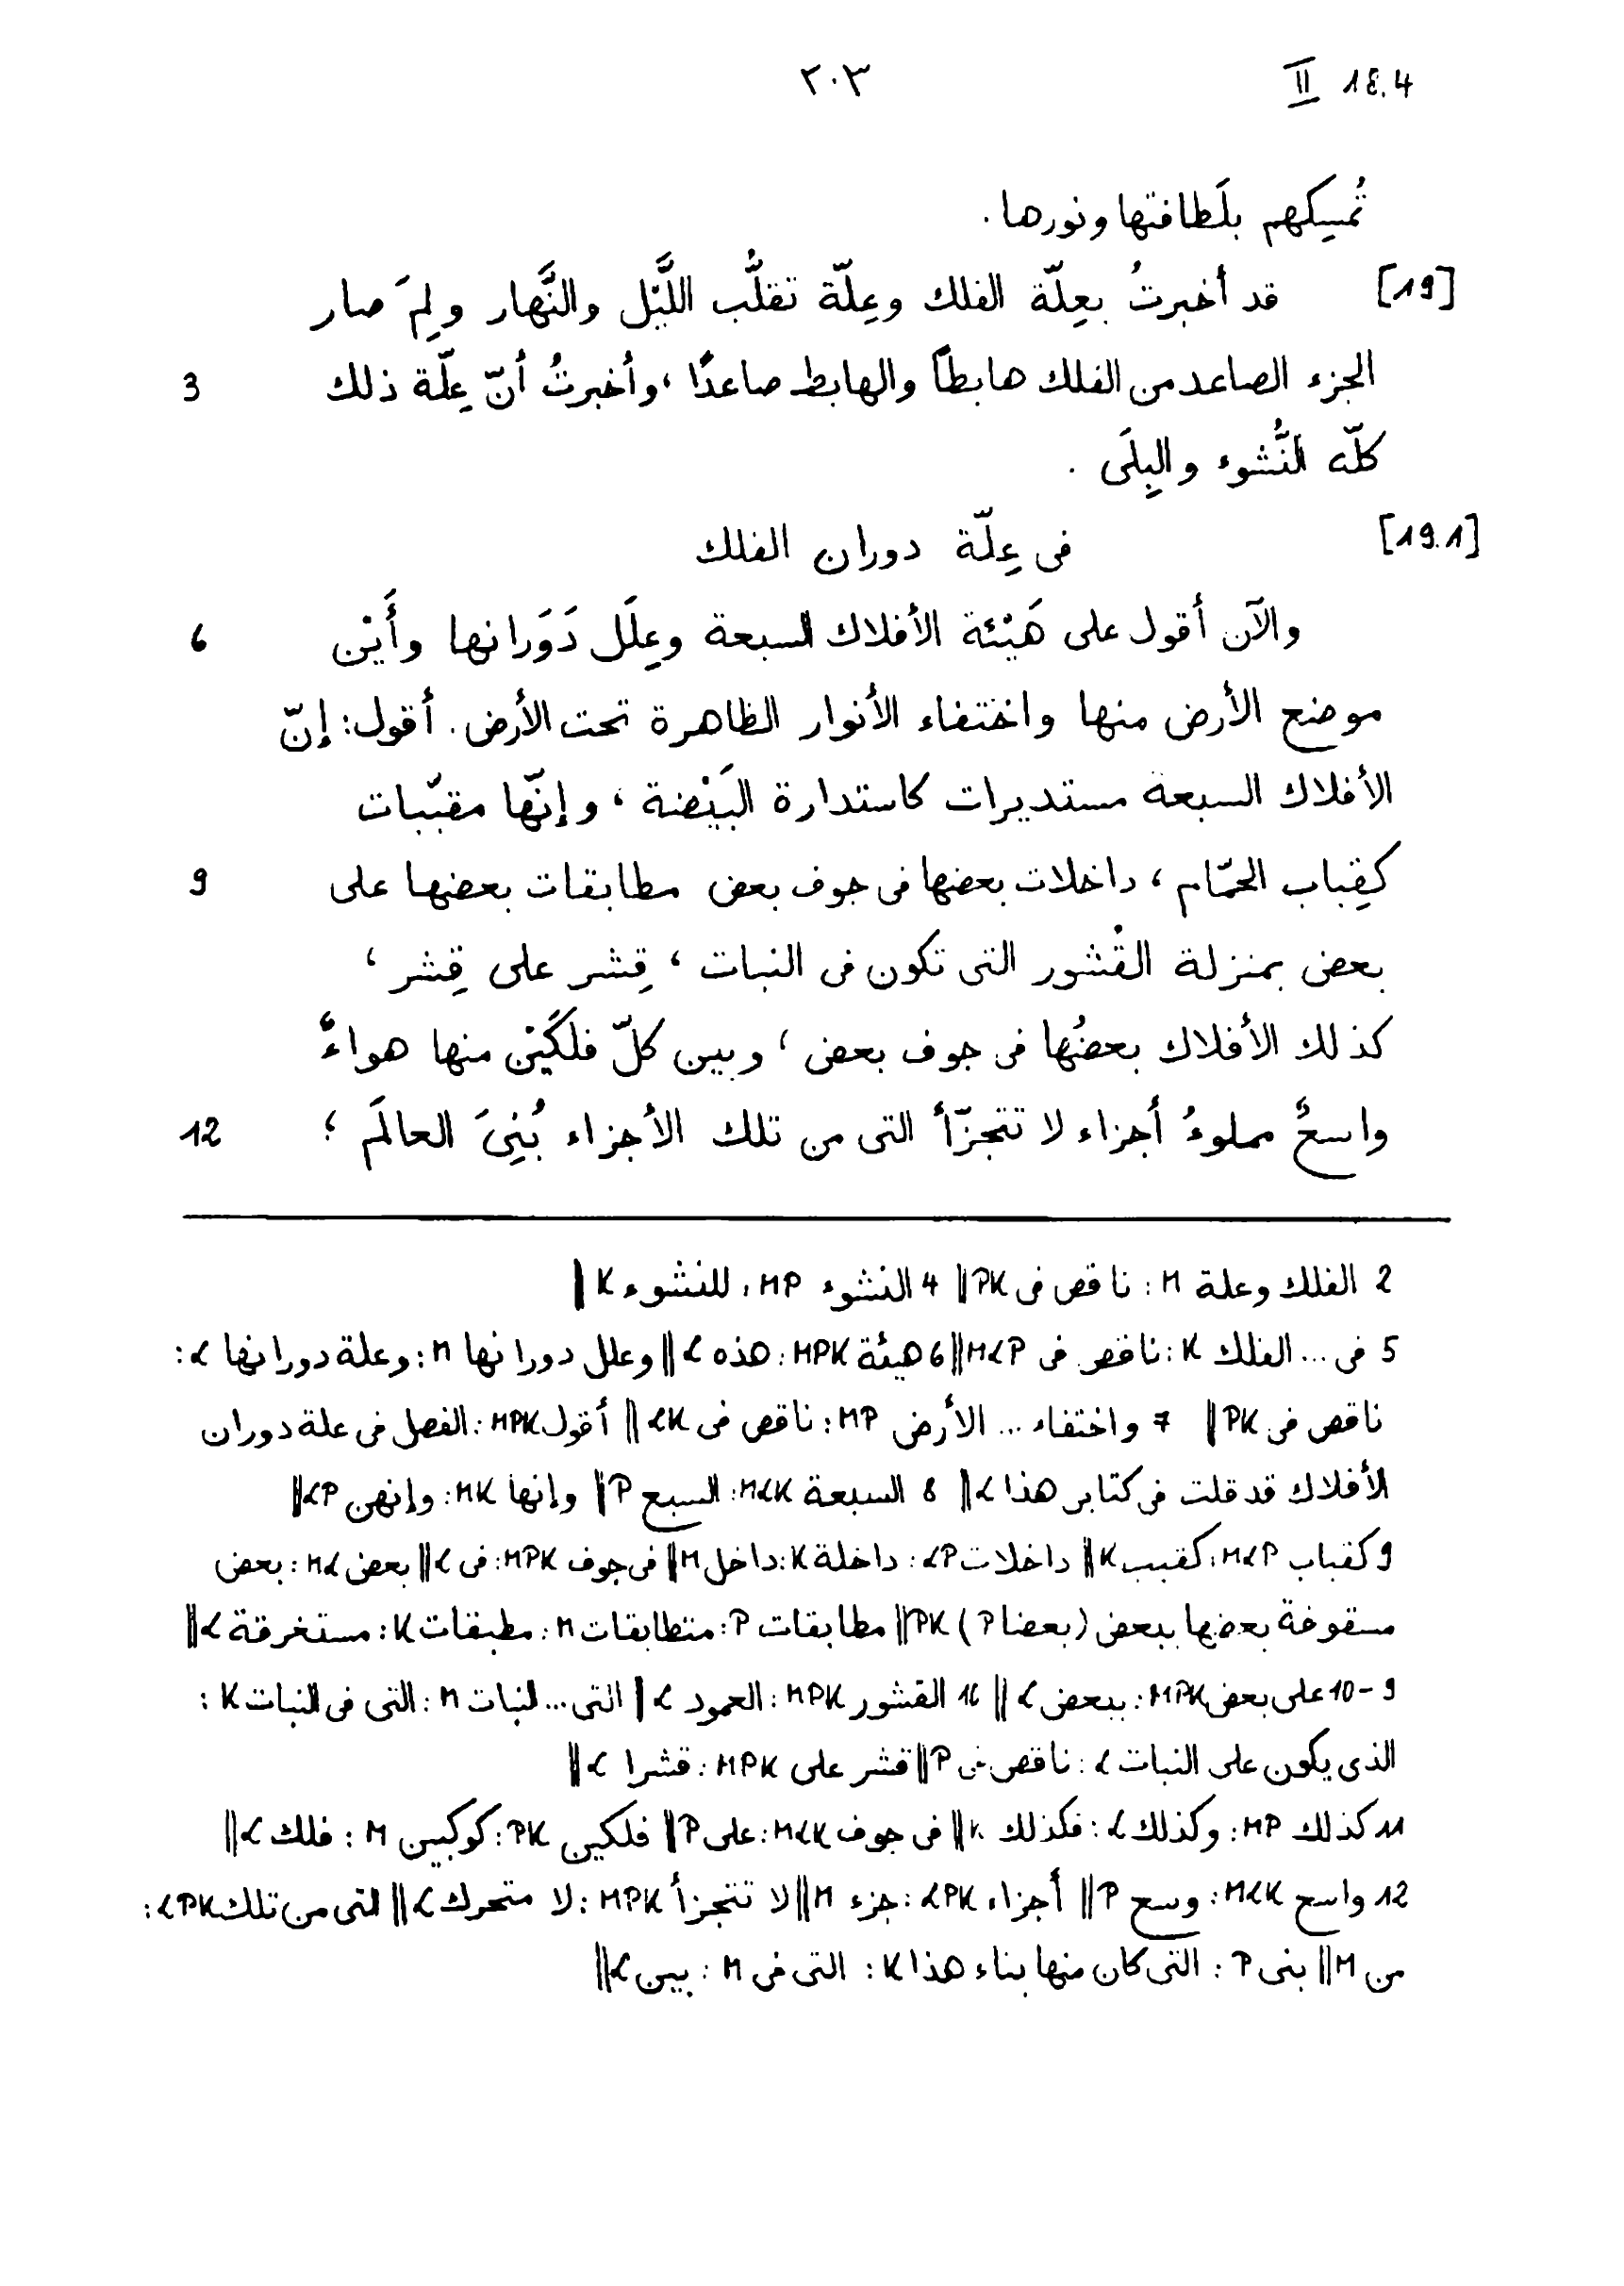 ٢٠٣ II 18.4
تُمسِكهم بلَطافتها ونورها .
[19] قد أخبرتُ بعِلّة الفلك وعِلّة تقلُّب اللَّيْل والنَّهار ولِمَ صار
الجزء الصاعد من الفلك هابطاً والهابط صاعدًا ، وأخبرتُ أنّ عِلّة ذلك 3
كلّه النُّشوء والبِلَى .
[19.1] فى عِلّة دوران الفلك
والآن أقول على هَيْئة الأفلاك السبعة وعِلَل دَوَرانها وأَيْن 6
موضع الأرض منها واختفاء الأنوار الظاهرة تحت الأرض . أقول : إنّ
الأفلاك السبعة مستديرات كاستدارة البَيْضة ، وإنّها مقبّبات
كقِباب الحمّام ، داخلات بعضها فى جوف بعض مطابقات بعضها على 9
بعض بمنزلة القُشور التى تكون فى النبات ، قِشر على قِشر ،
كذلك الأفلاك بعضُها فى جوف بعض ، وبين كلّ فلكَيْن منها هواءٌ
واسعٌ مملوءُ أجزاء لا تتجزّأ التى من تلك الأجزاء بُنِىَ العالَم ؛ 12
2 الفلك وعلة M : ناقص فى PK || 4 النشوء MP : للنشوء K ||
5 فى ... الفلك K : ناقص فى MLP || 6 هيئة MPK : هذه L || وعلل دورانها M : وعلة دورانها L :
ناقص فى PK || 7 واختفاء ... الأرض MP : ناقص فى LK || أقول MPK : الفصل فى علة دوران
الأفلاك قد قلت فى كتابى هذا L || 8 السبعة MLK : السبع P || وإنها MK : وإنهن LP ||
9 كقباب MLP : كقبب K || داخلات LP : داخلة K : داخل M || فى جوف MPK : فى L || بعض ML : بعض
مسقوفة بعضها ببعض (بعضا P) PK || مطابقات P : متطابقات M : مطبقات K : مستغرقة L ||
9-10 على بعض MPK : ببعض L || 10 القشور MPK : العمود L || التى ... لنبات M : التى فى النبات K :
الذى يكون على النبات L : ناقص فى P || قشر على MPK : قشرا L ||
11 كذلك MP : وكذلك L : فكذلك K || فى جوف MLK : على P || فلكين PK : كوكبين M : فلك L ||
12 واسع MLK : وسع P || أجزاء LPK : جزء M || لا تتجزأ MPK : لا متحرك L || التى من تلك LPK :
من M || بنى P : التى كان منها بناء هذا K : التى فى M : بين L ||